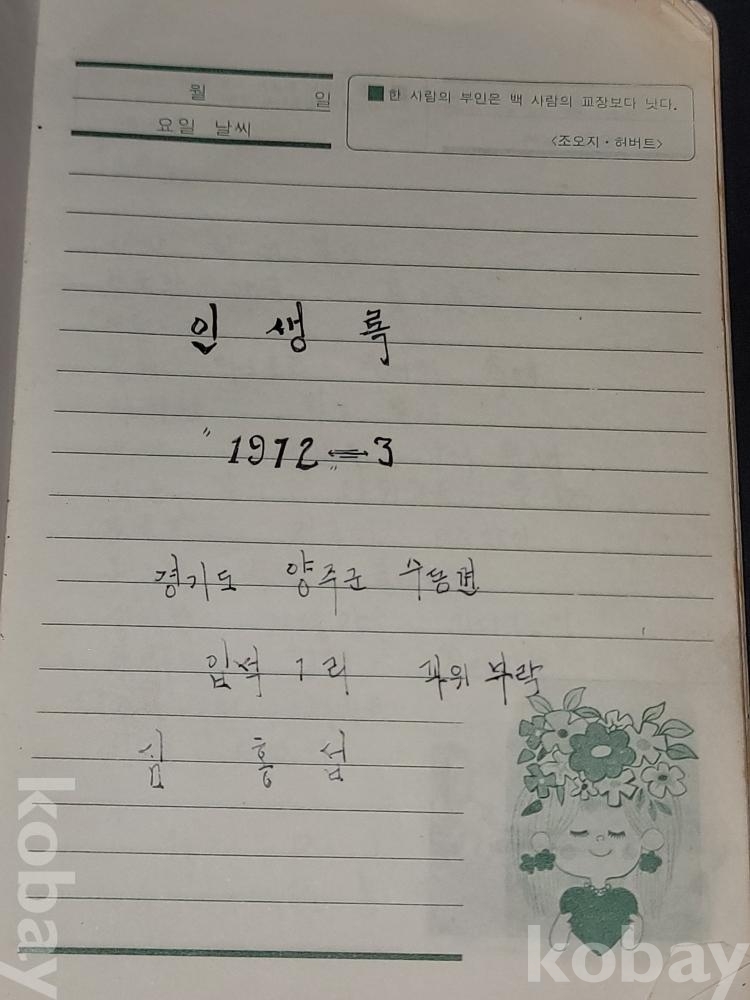 월 일
요일 날씨
■한 사람의 부인은 백 사람의 교장보다 낫다.
<조오지·허버트>
인 생 록
"1972 ⇐ 3
경기도 양주군 수동면
입석 1 리 꾀위 부락
심 홍 섭
kobay
kobay